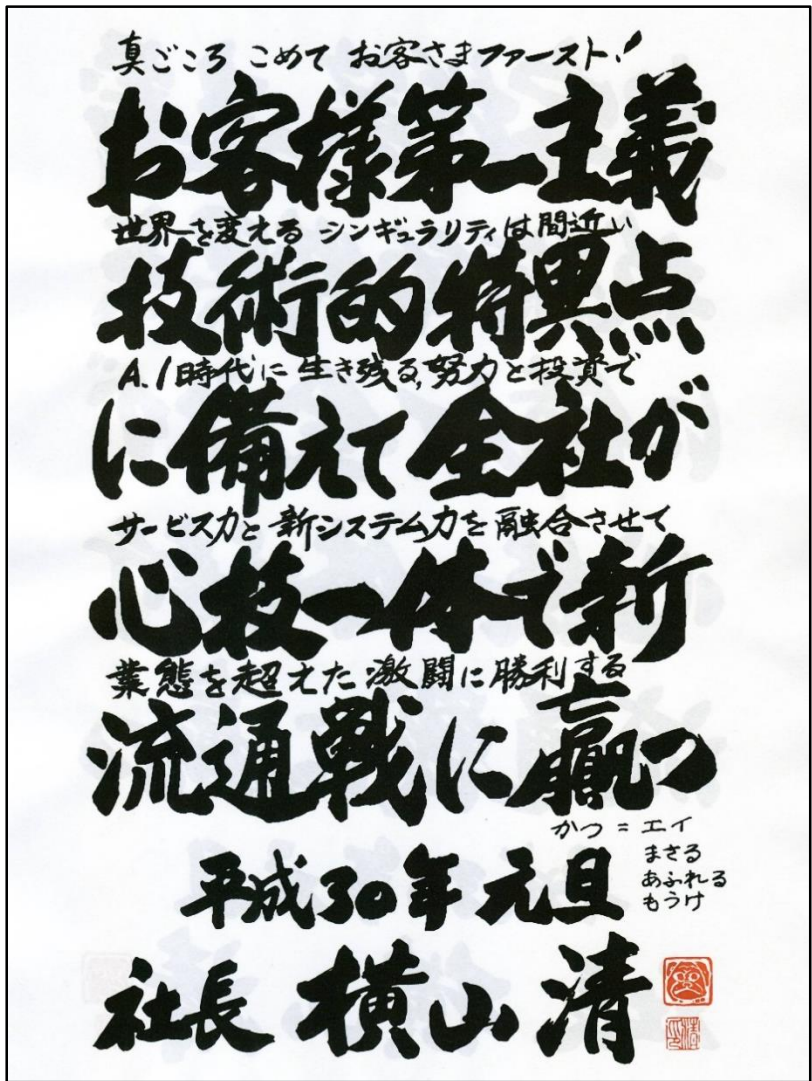 真ごころ こめて お客さまファースト!
お客様第一主義
世界を変える シンギュラリティは間近い
技術的特異点
A.I時代に 生き残る、努力と投資で
に備えて全社が
サービス力と 新システム力を 融合させて
心技一体で新
業態を超えた 激闘に勝利する
流通戦に贏つ
かつ = エイ
まさる
あふれる
もうけ
平成30年 元旦
社長 横山 清